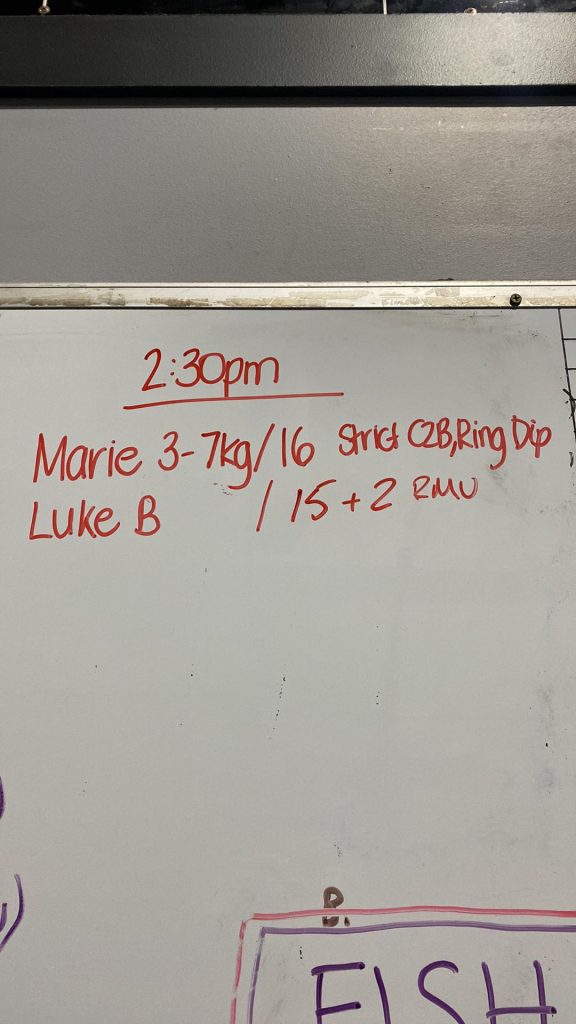 2:30pm
Marie 3-7kg/16 Strict C2B, Ring Dip
Luke B / 15 + 2 RMU
B.
FISH